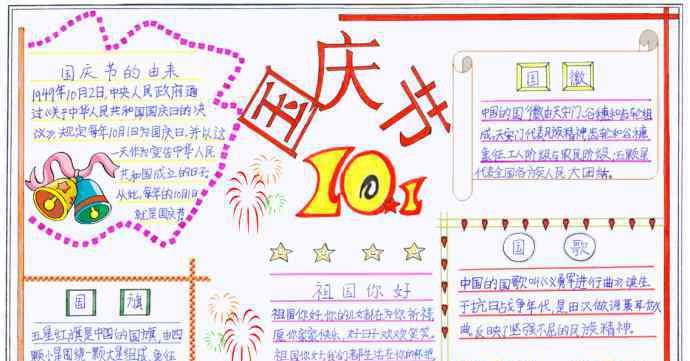 国庆节
10.1
国庆节的由来
1949年10月2日,中央人民政府通
过《关于中华人民共和国国庆日的决
议》,规定每年10月1日为国庆日,并以这
一天作为宣告中华人民
共和国成立的日子,
从此,每年的10月1日
就是国庆节
国徽
中国的国徽由天安门、谷穗和齿轮组
成,天安门代表民族精神,齿轮和谷穗
象征工人阶级与农民阶级,五颗星
代表全国各族人民大团结。
国旗
五星红旗是中国的国旗,由四
颗小星围绕一颗大星组成,象征
祖国你好
祖国你好,你的儿女都在为你祈福
愿你家家快乐,对月欢欢笑笑。
祖国你好,我们都生活在你的怀抱
国歌
中国的国歌叫《义勇军进行曲》,诞生
于抗日战争年代,是由田汉作词聂耳作
曲,反映了坚强不屈的民族精神。